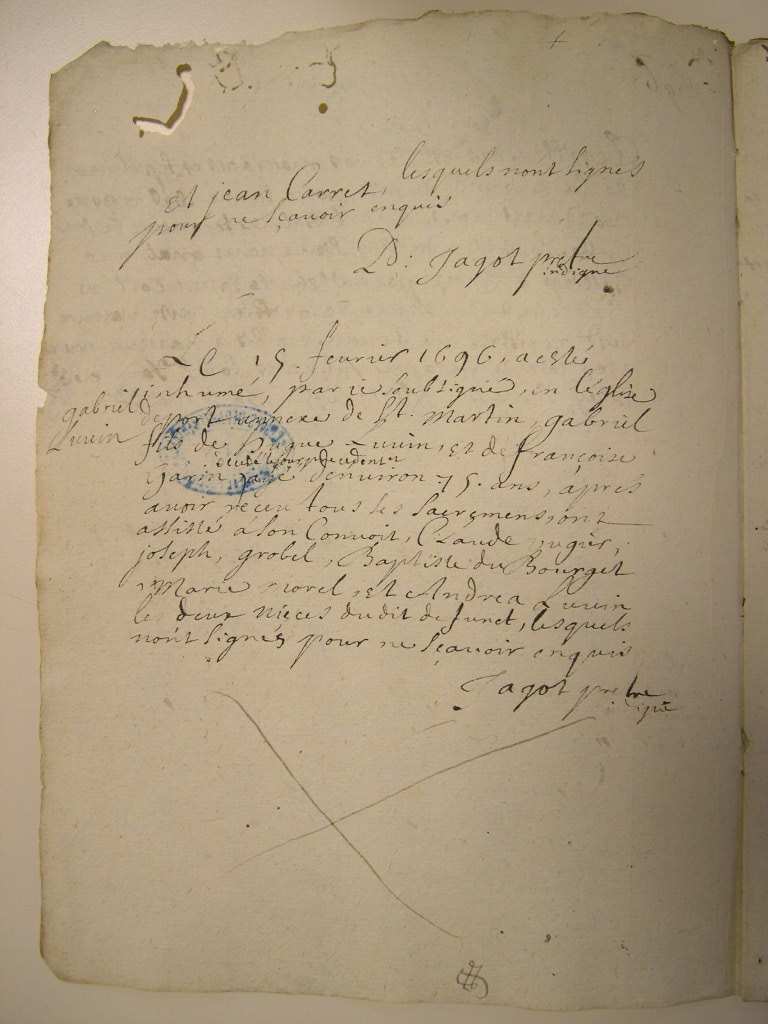 Et jean Carret, lesquels nont signés
pour ne sçavoir enquis
D: Jagot prebtre
indigne
Le 15. feurier 1696, a esté
inhumé, par ie soubsigné, en l'église
gabriel
Luuin
de port annexe de St. Martin, gabriel
fils de hugue Luuin, et de françoise
décédé le jour précédent
Garin, agé denuiron .75. ans, apres
auoir receu tous les sacremens, ont
assisté a son Conuoit, Claude
joseph, grobel, Baptiste du Bourget
Marie morel, et Andrea Luuin
les deux nieces dudit defunct, lesquels
nont signés pour ne sçauoir enquis
Jagot prebtre